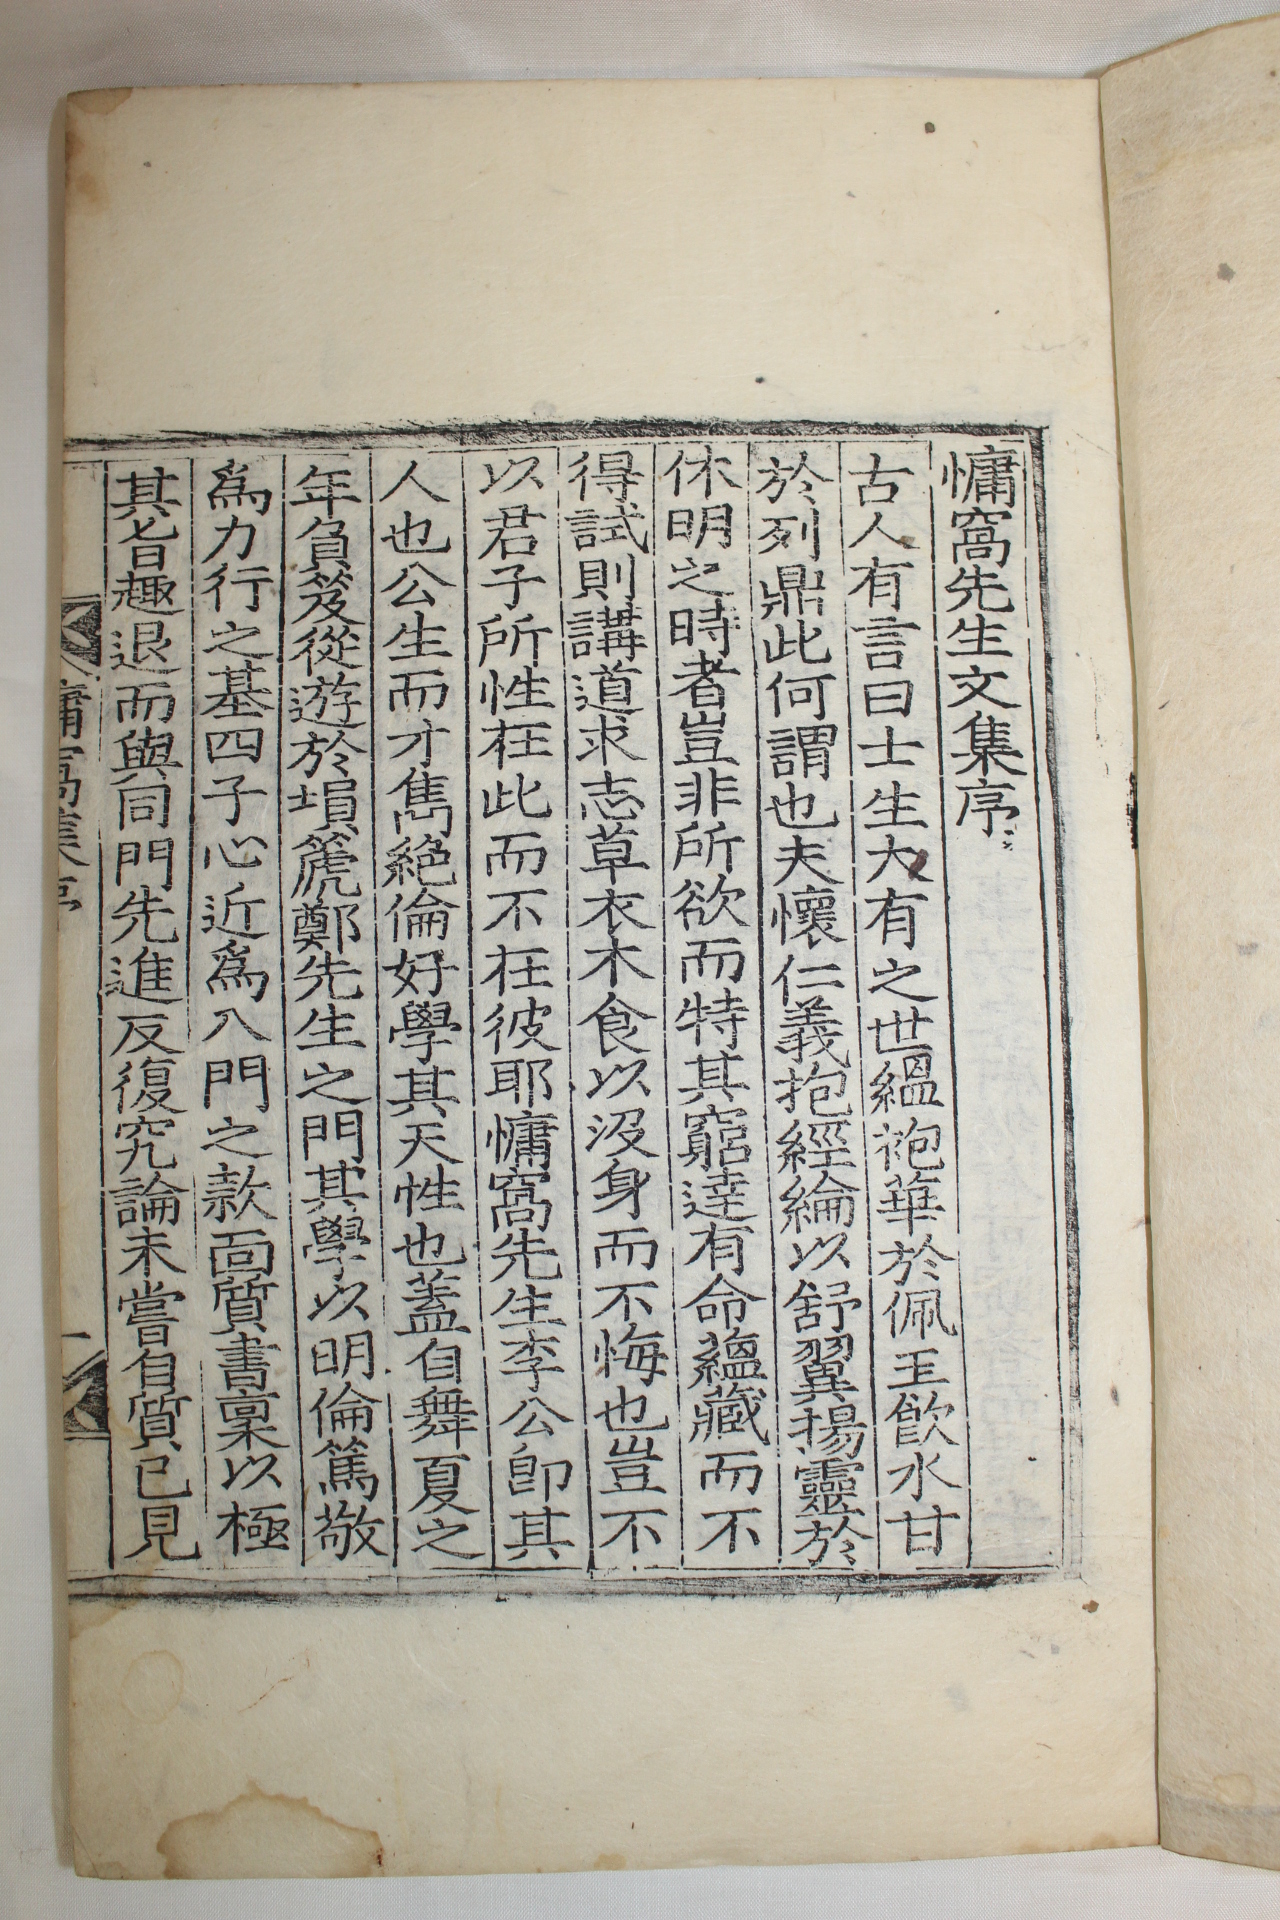 慵窩先生文集序
古人有言曰士生大有之世縕袍華於佩玉飮水甘
於列鼎此何謂也夫懷仁義抱經綸以舒翼揚靈於
休明之時者豈非所欲而特其窮達有命蘊藏而不
得試則講道求志草衣木食以沒身而不悔也豈不
以君子所性在此而不在彼耶慵窩先生李公卽其
人也公生而才雋絶倫好學其天性也蓋自舞夏之
年負笈從遊於塤篪鄭先生之門其學以明倫篤敬
爲力行之基四子心近爲入門之款面質書稟以極
其旨趣退而與同門先進反復究論未嘗自質已見
慵窩集序
一